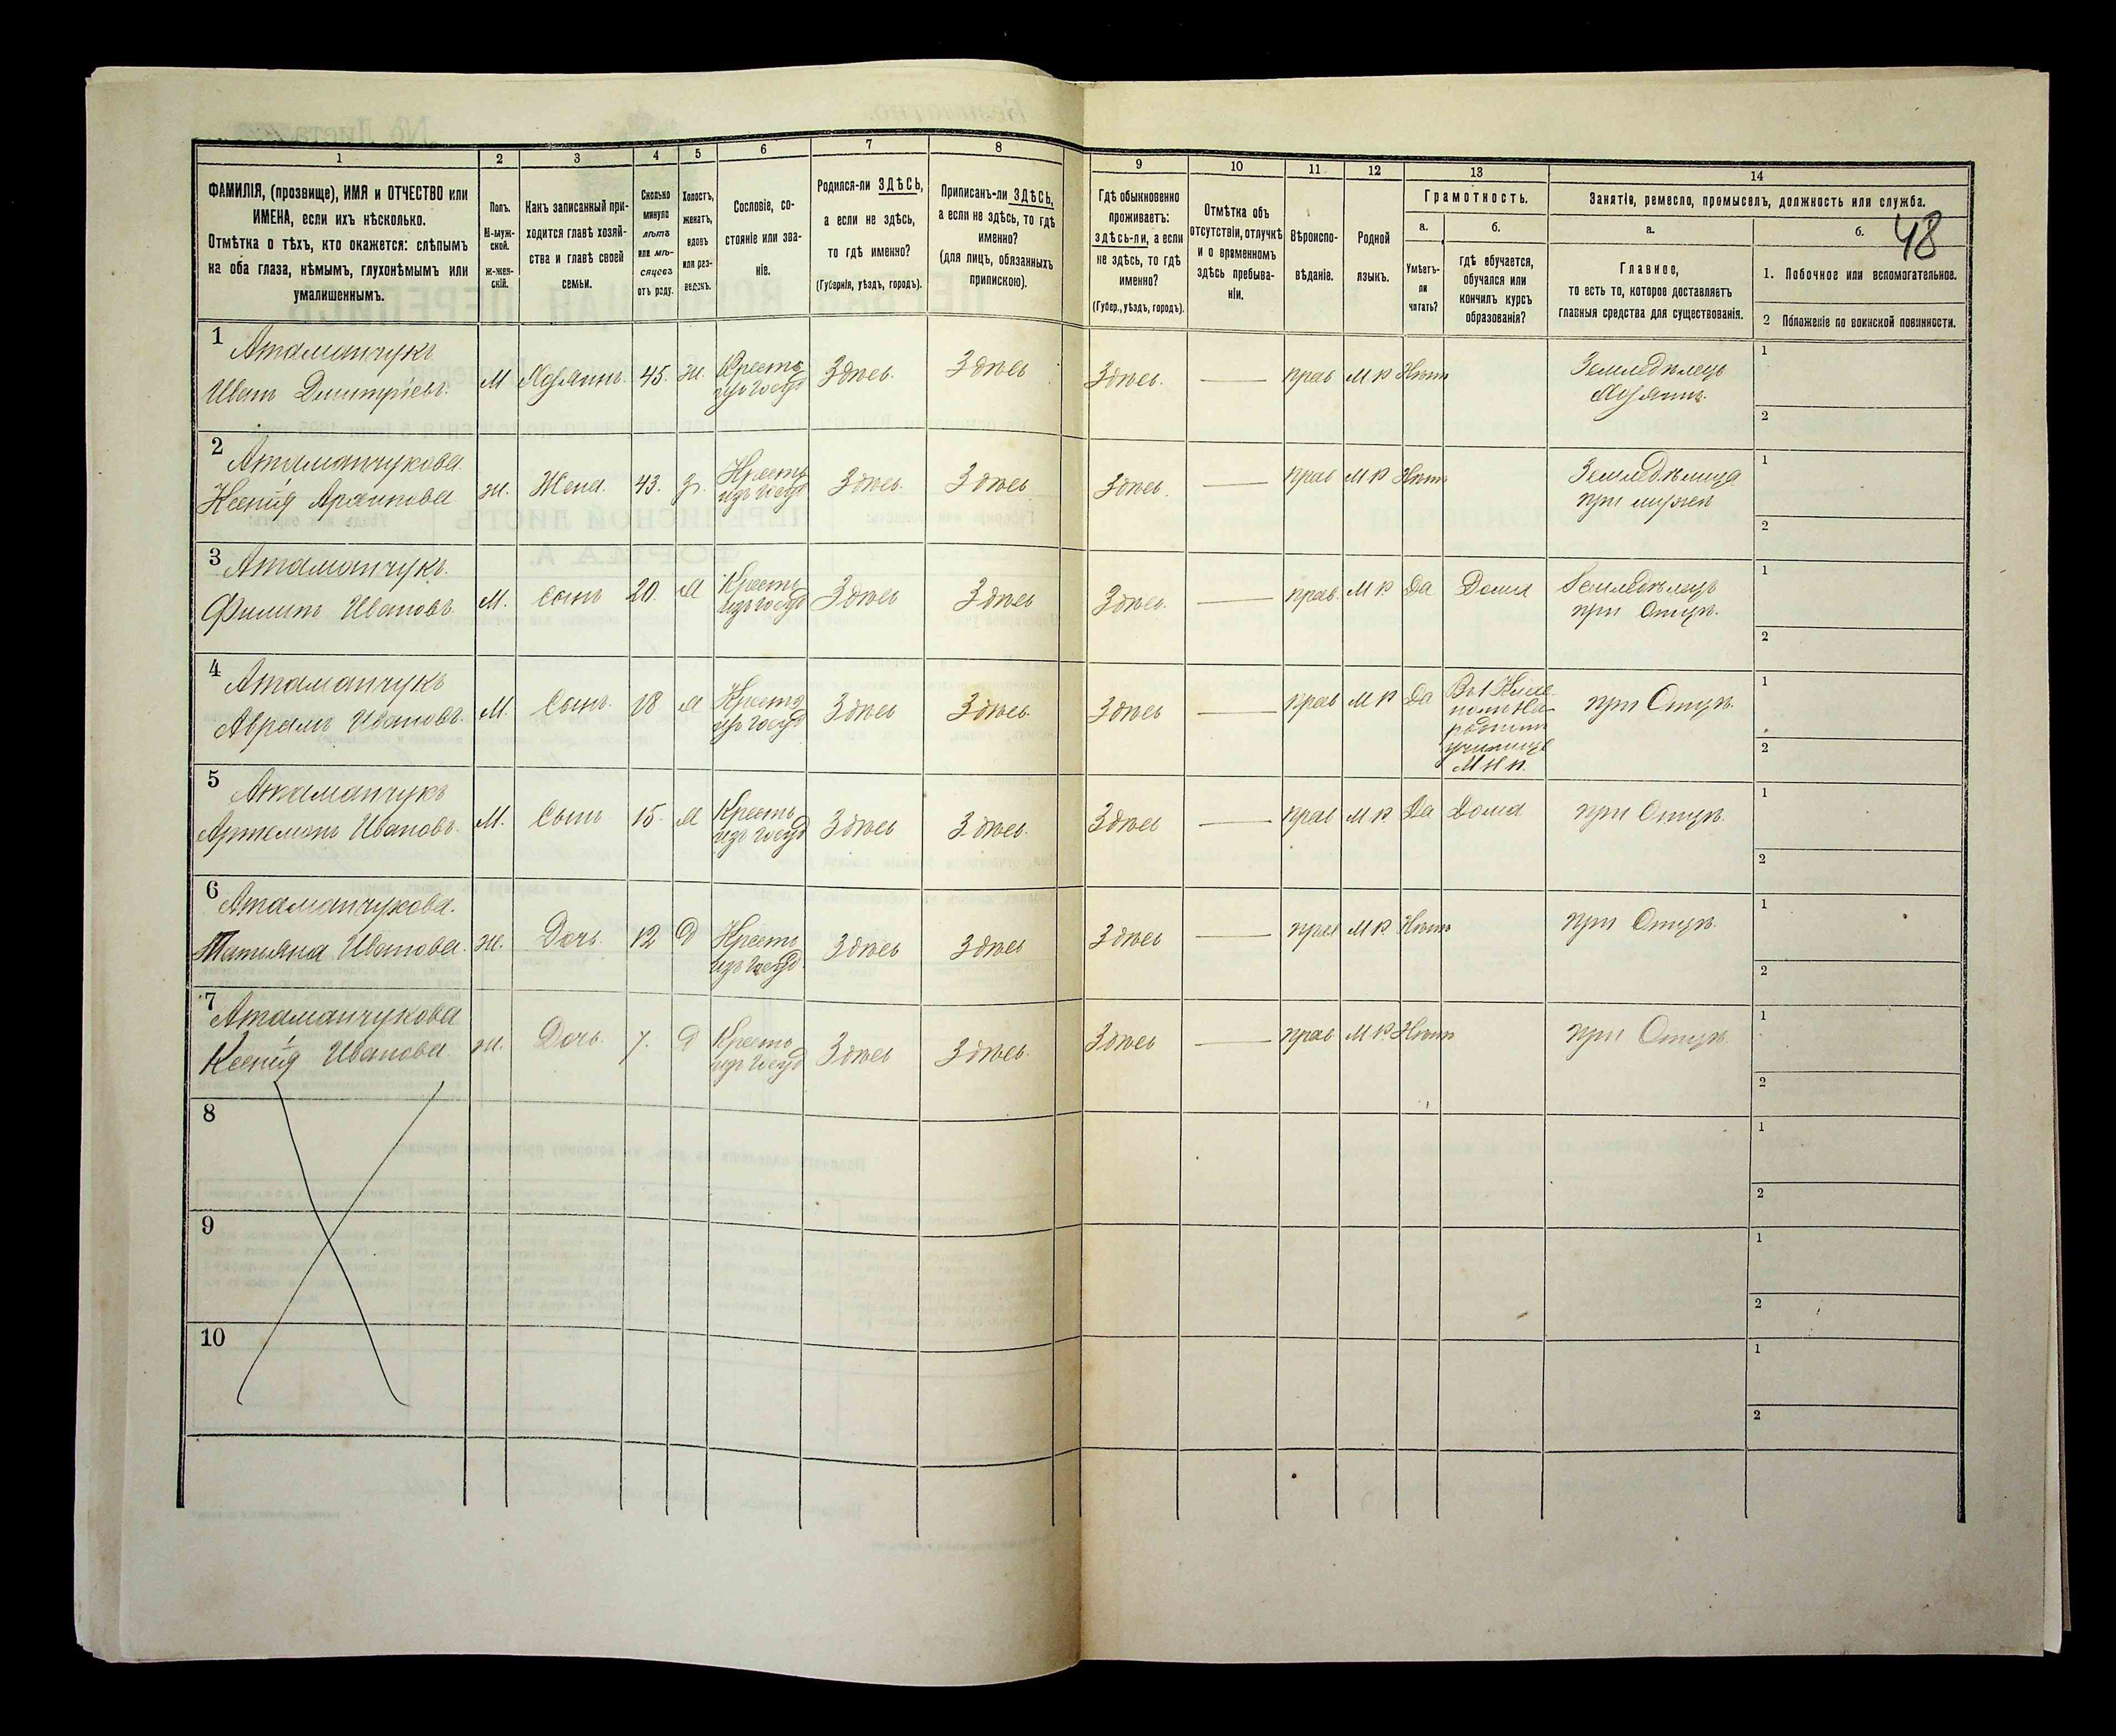 48
1
2
3
4
5
6
7
8
9
10
11
12
13
14
ФАМИЛІЯ, (прозвище), ИМЯ и ОТЧЕСТВО или
ИМЕНА, если ихъ нѣсколько.
Отмѣтка о тѣхъ, кто окажется: слѣпымъ
на оба глаза, нѣмымъ, глухонѣмымъ или
умалишеннымъ.
Полъ.
М-муж-
ской.
Ж-жен-
скій.
Какъ записанный при-
ходится главѣ хозяй-
ства и главѣ своей
семьи.
Сколько
минуло
лѣтъ
или мѣ-
сяцевъ
отъ роду.
Холостъ,
женатъ,
вдовъ
или раз-
веденъ.
Сословіе, со-
стояніе или зва-
ніе.
Родился-ли ЗДѢСЬ,
а если не здѣсь,
то гдѣ именно?
(Губернія, уѣздъ, городъ).
Приписанъ-ли ЗДѢСЬ,
а если не здѣсь, то гдѣ
именно?
(для лицъ, обязанныхъ
припискою).
Гдѣ обыкновенно
проживаетъ:
здѣсь-ли, а если
не здѣсь, то гдѣ
именно?
(Губер., уѣздъ, городъ).
Отмѣтка объ
отсутствіи, отлучкѣ
и о временномъ
здѣсь пребыва-
ніи.
Вѣроиспо-
вѣданіе.
Родной
языкъ.
Грамотность.
а.
Умѣетъ-
ли
читать?
б.
гдѣ обучается,
обучался или
кончилъ курсъ
образованія?
Занятіе, ремесло, промыселъ, должность или служба.
а.
Главное,
то есть то, которое доставляетъ
главныя средства для существованія.
б.
1. Побочное или вспомогательное.
2 Положеніе по воинской повинности.
1 Атаманчукъ
Иванъ Дмитріевъ. М Хозяинъ. 45. ж. Крестъ
изъ госуд Здѣсь. Здѣсь Здѣсь. — прав М Р Нѣтъ Земледѣлецъ
Хозяинъ. 1
2
2 Атаманчукова
Ксенія Архипова ж. Жена. 43. з. Крестъ
изъ госуд Здѣсь. Здѣсь Здѣсь. — прав М Р Нѣтъ Земледѣлица
при мужѣ 1
2
3 Атаманчукъ.
Филипъ Ивановъ. М. Сынъ 20. х Крестъ
изъ госуд Здѣсь Здѣсь Здѣсь. — прав. М Р Да Дома Земледѣлецъ
при Отцѣ. 1
2
4 Атаманчукъ
Аврамъ Ивановъ. М. Сынъ. 18 х Крестъ
изъ госуд Здѣсь Здѣсь. Здѣсь — прав М Р Да при Отцѣ. 1
родномъ
училищѣ
М Н П. 2
5 Атаманчукъ
Артемонъ Ивановъ. М. Сынъ 15. х Крестъ
изъ госуд Здѣсь Здѣсь. Здѣсь — прав М Р. Да Дома при Отцѣ. 1
2
6 Атаманчукова.
Татьяна Иванова. ж. Дочь. 12 д Крестъ
изъ госуд. Здѣсь Здѣсь Здѣсь — прав М Р Нѣтъ при Отцѣ. 1
2
7 Атаманчукова
Ксенія Иванова. ж. Дочь. 7. д Крестъ
изъ госуд Здѣсь Здѣсь. Здѣсь — прав М Р. Нѣтъ при Отцѣ 1
2
8 1
2
9 1
2
10 1
2